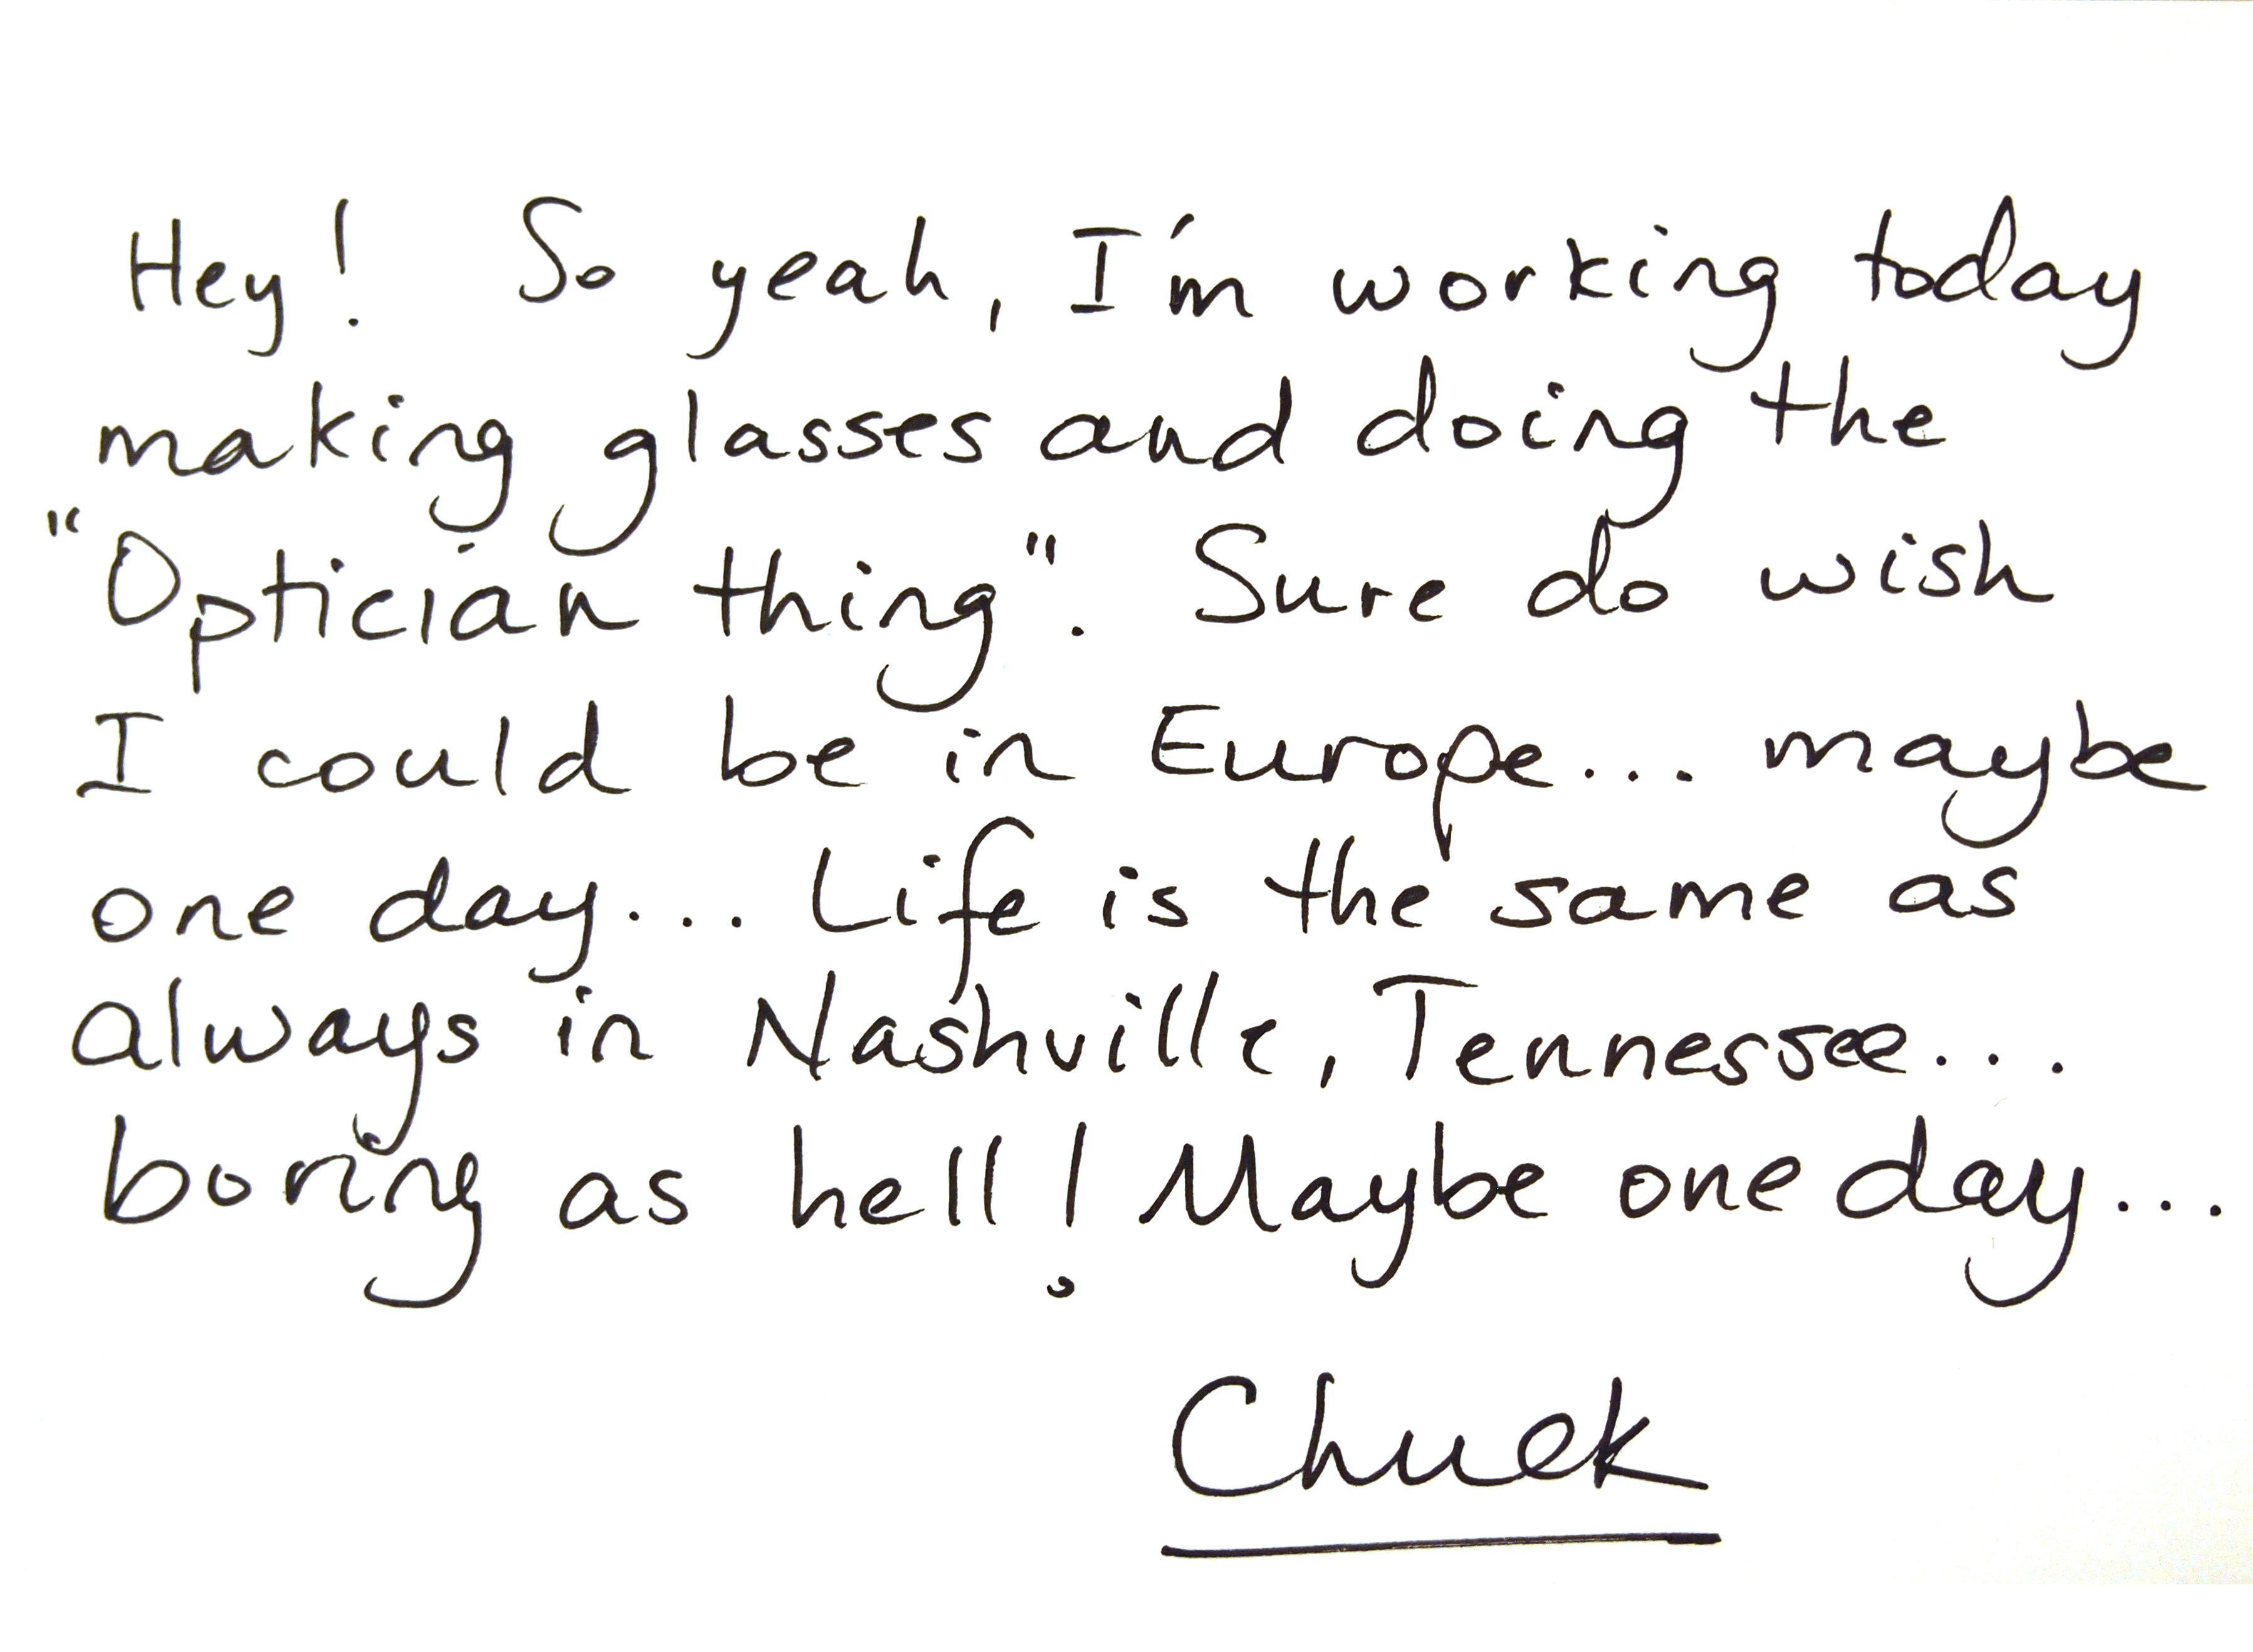 Hey! So yeah, I'm working today
making glasses and doing the
"Optician thing". Sure do wish
I could be in Europe... maybe
one day... Life is the same as
always in Nashville, Tennessee...
boring as hell! Maybe one day...
Chuck